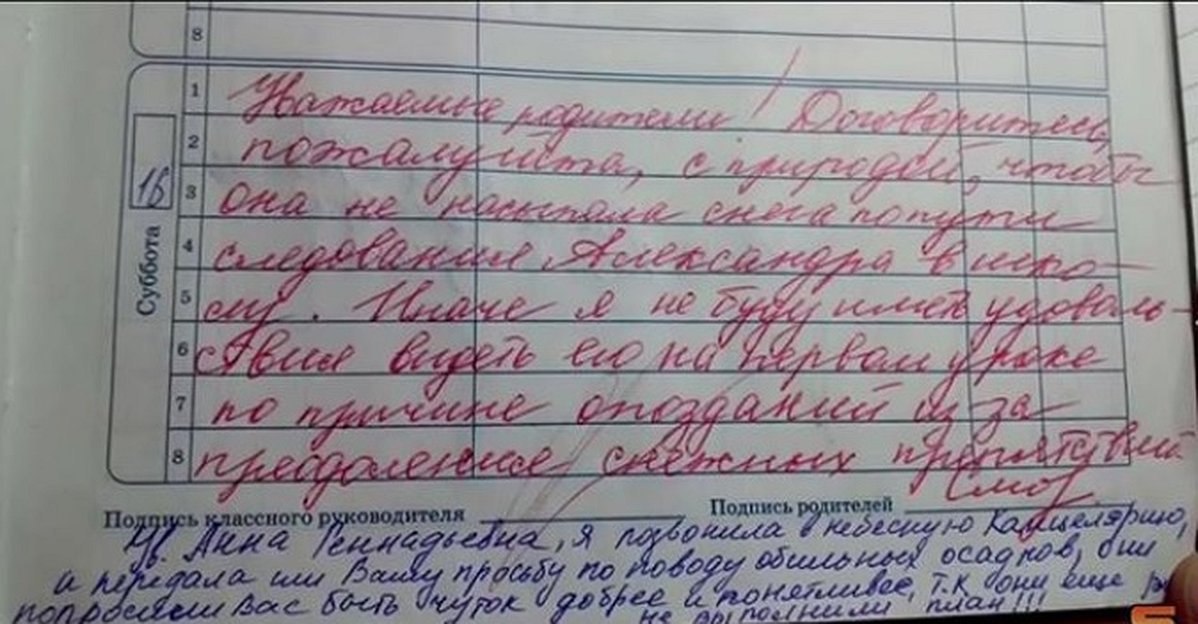 8
1 Уважаемые родители! Договоритесь,
2 пожалуйста, с природой, чтобы
16
3 она не насыпала снега по пути
4 следования Александра в шко-
Суббота
5 лу. Иначе я не буду иметь удоволь-
6 ствия видеть его на первом уроке
7 по причине опозданий из за
8 преодоления снежных препятствий
Подпись классного руководителя Подпись родителей
Ув. Анна Геннадьевна, я позвонила в небесную канцелярию,
и передала им Вашу просьбу по поводу обильных осадков, они
попросили Вас быть чуток добрее и понятливее, т.к они еще
не выполнили план!!!